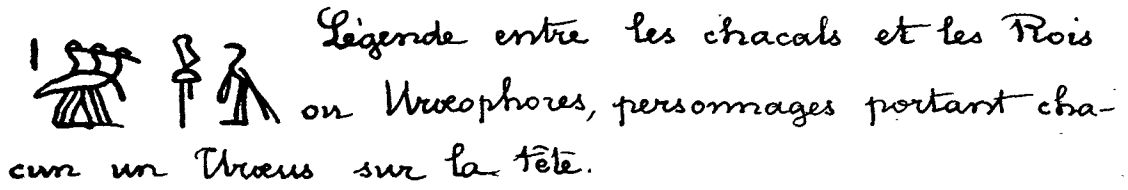 Légende entre les chacals et les Rois
ou Uræophores, personnages portant cha-
cun un Uræus sur la tête.